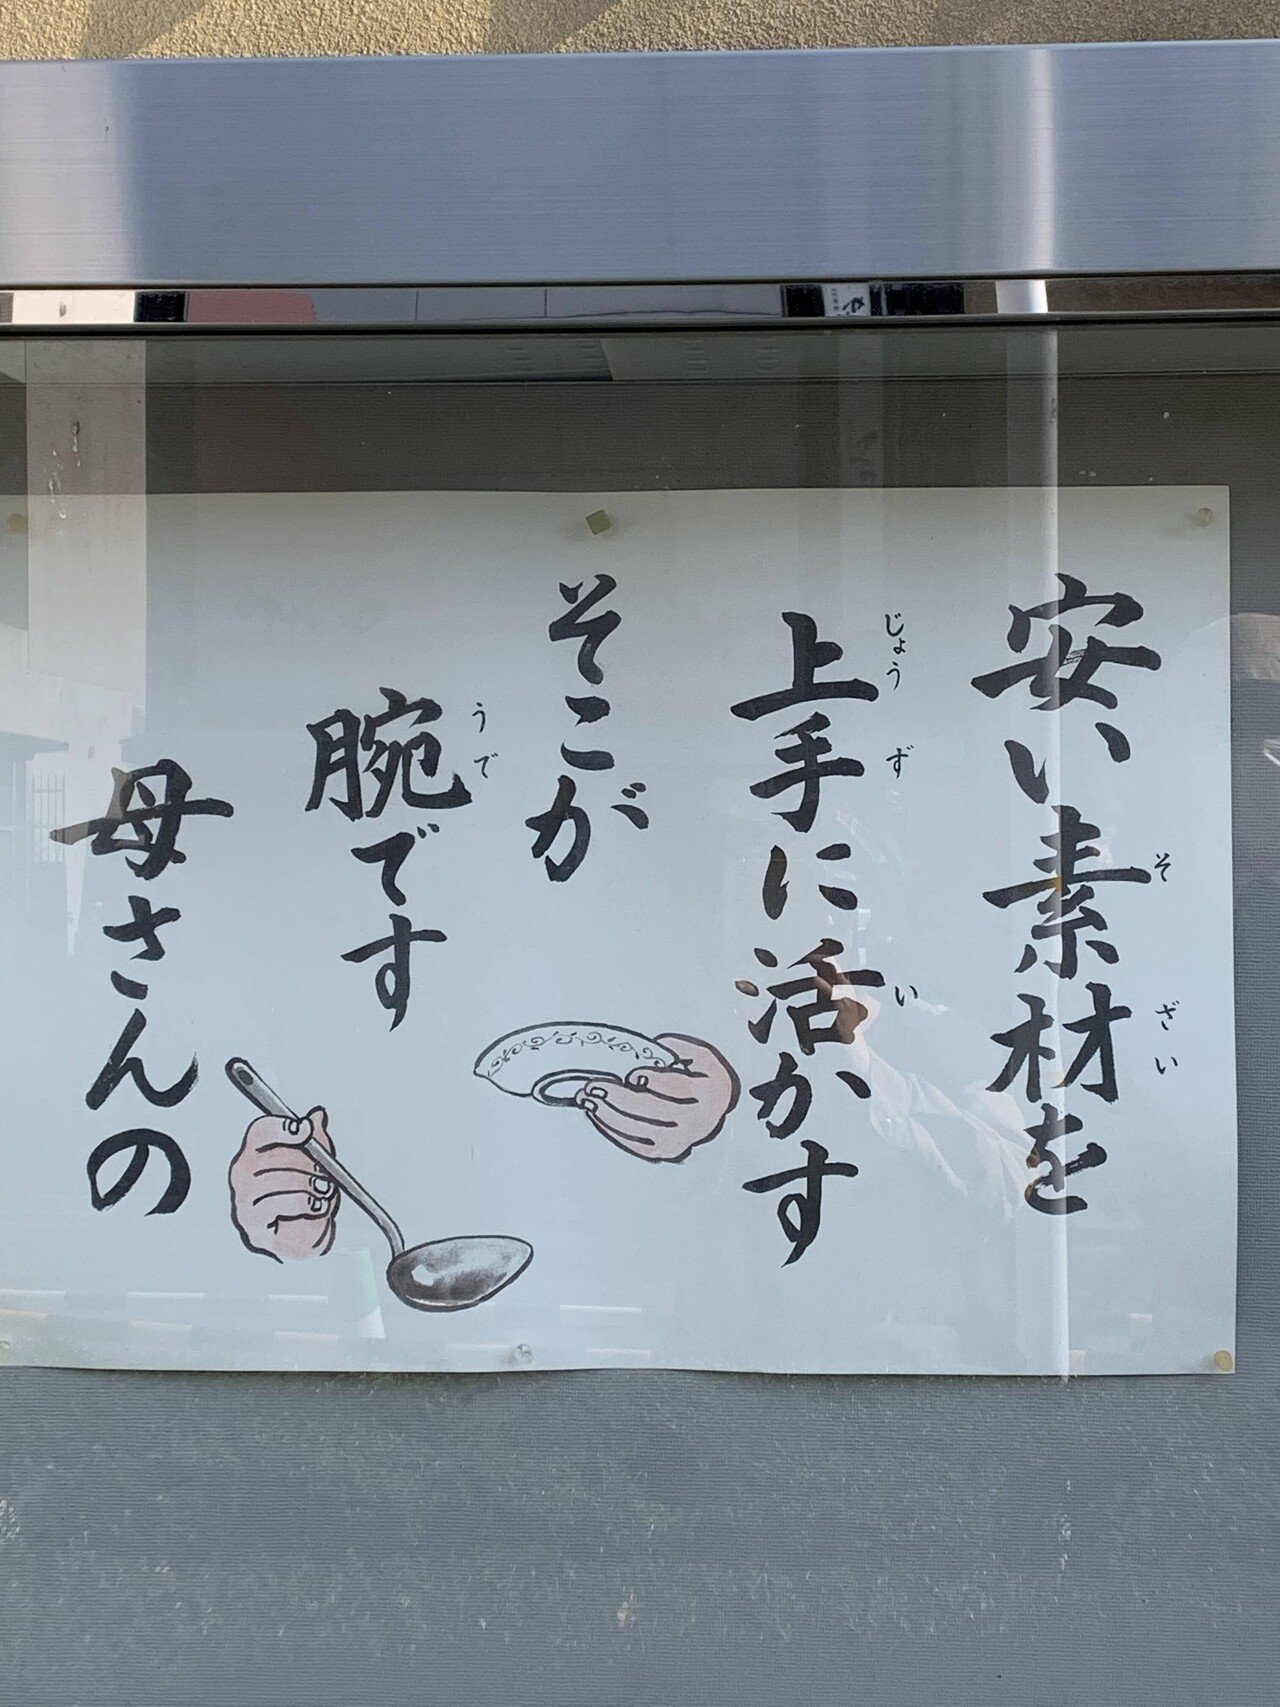 安い素材を
そざい
上手に活かす
じょうず い
そこが
腕です
うで
母さんの